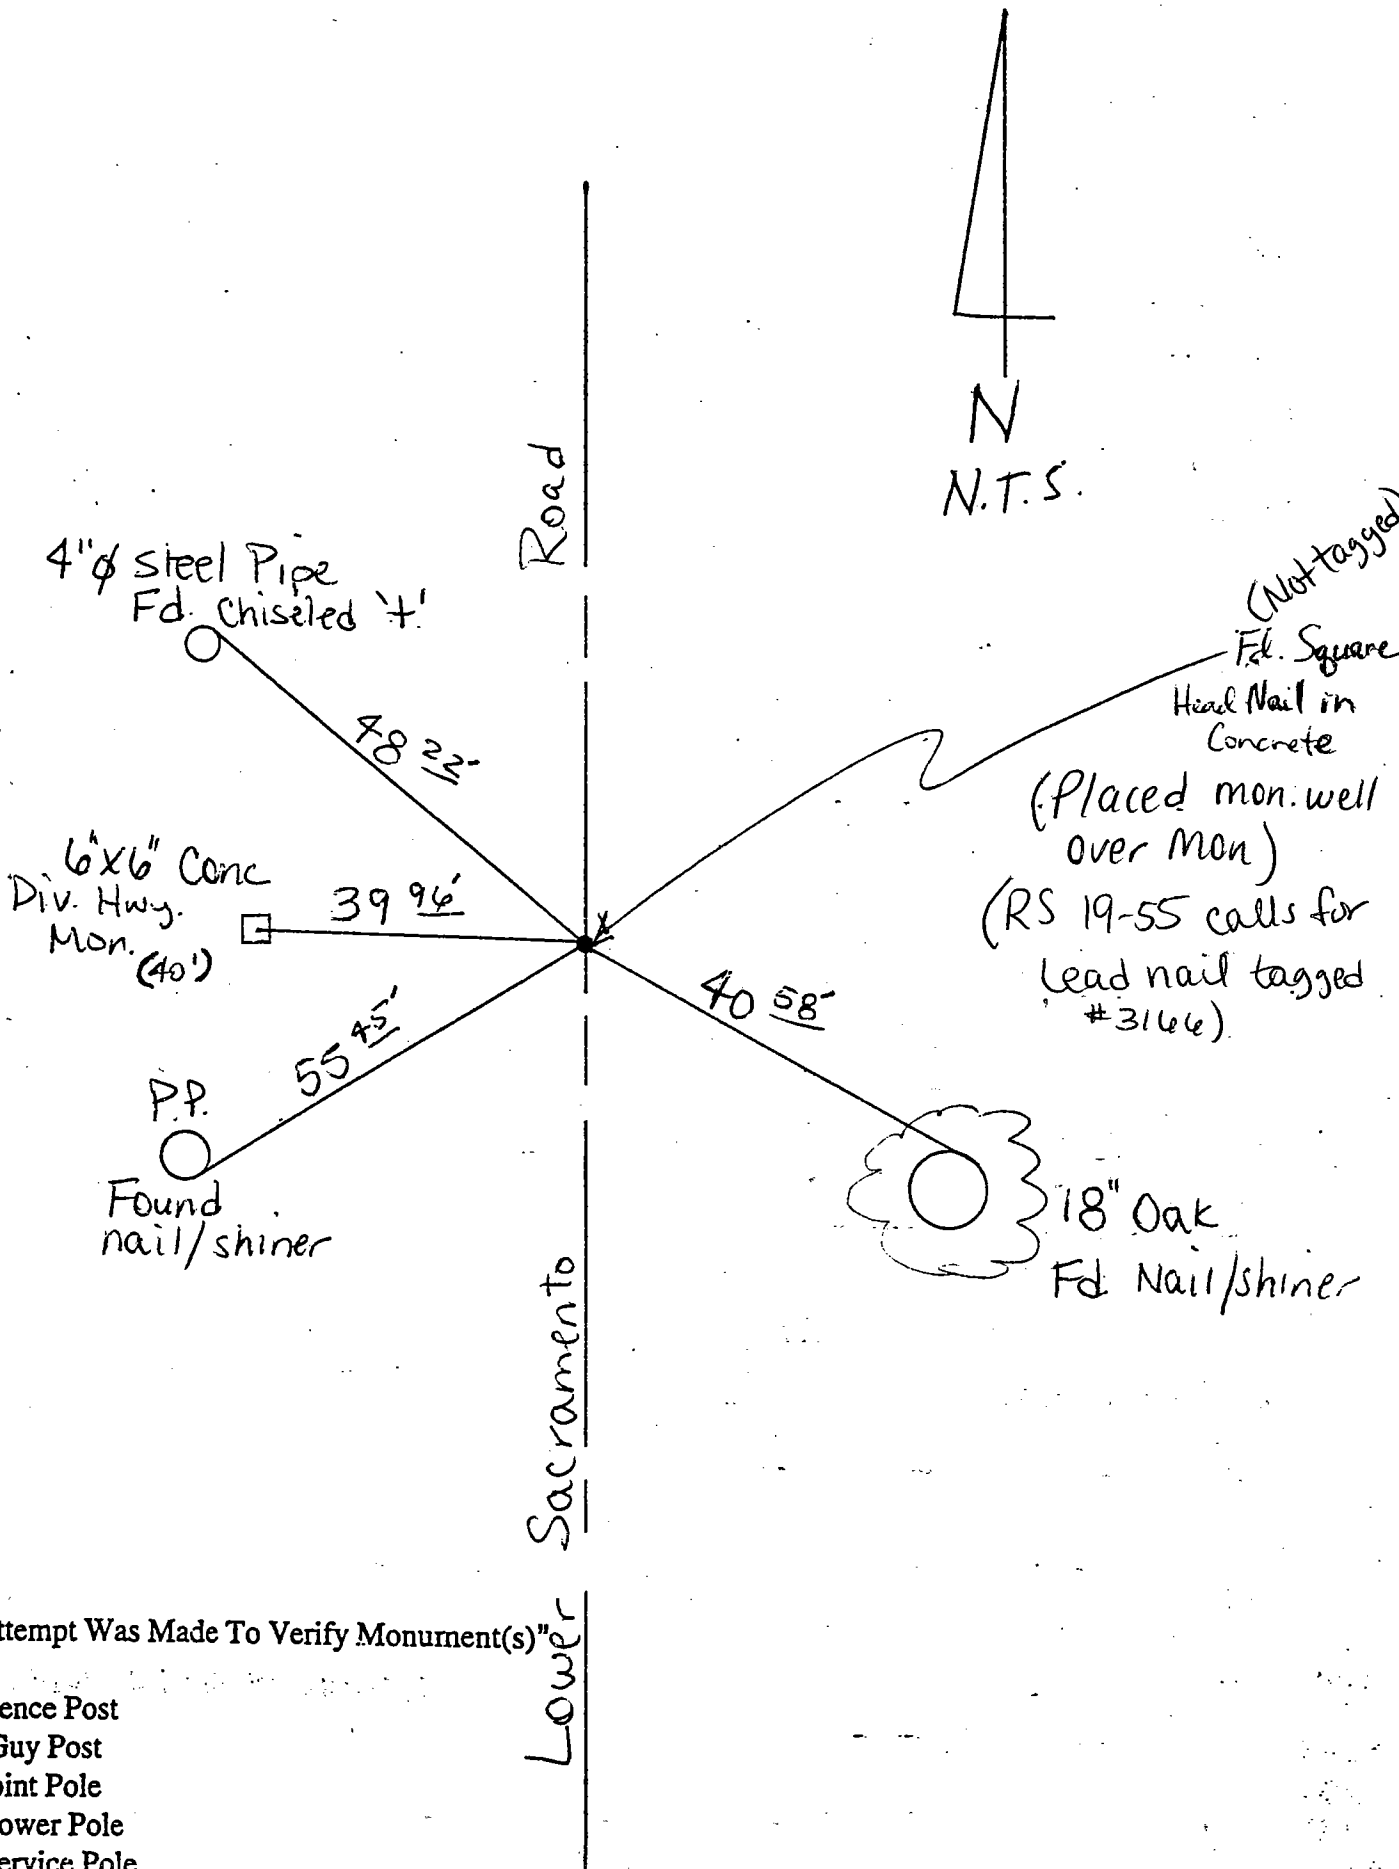 N
N.T.S.
Road
4"ø Steel Pipe
Fd. Chiseled '+'
48 22'
(Not tagged)
Fd. Square
Head Nail in
Concrete
(Placed mon. well
over Mon)
(RS 19-55 calls for
Lead nail tagged
#3166)
6"x6" Conc
Div. Hwy.
Mon.
(40')
39 96'
40 58'
55 45'
P.P.
Found
nail/shiner
18" Oak
Fd. Nail/shiner
Lower Sacramento
ttempt Was Made To Verify Monument(s)"
ence Post
Guy Post
oint Pole
ower Pole
ervice Pole